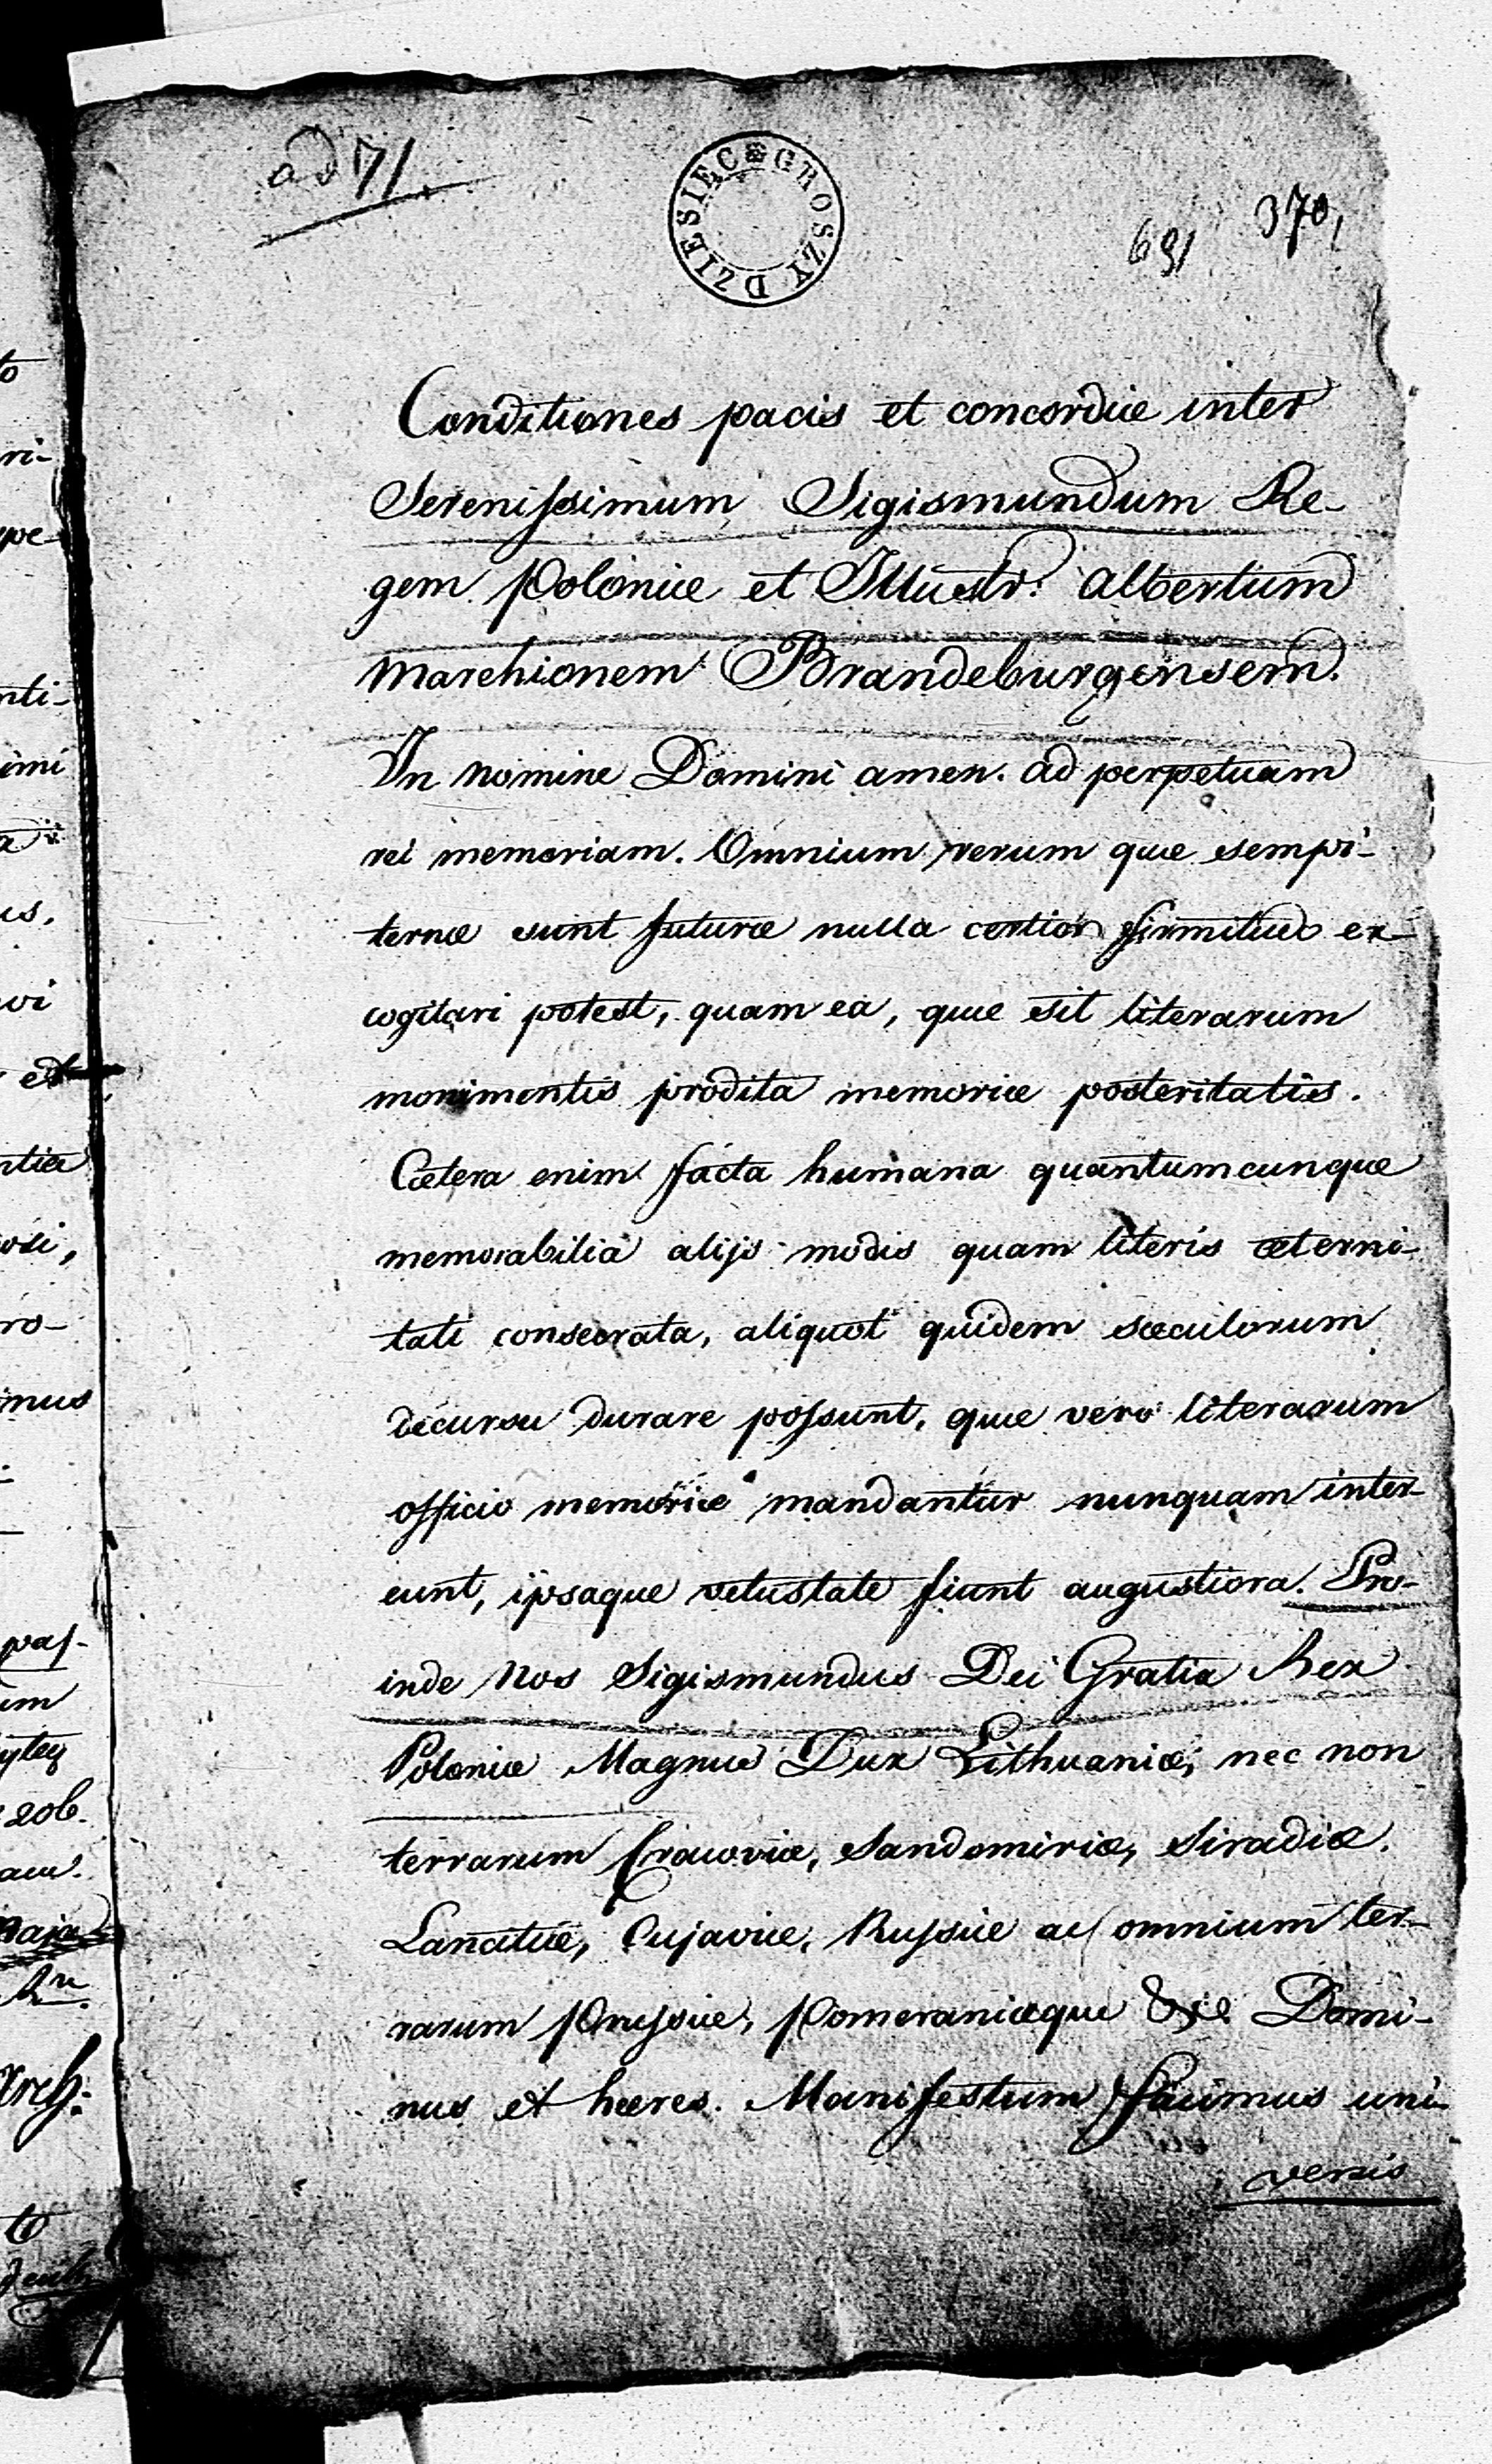 ad 71.
DZIESIĘC GROSZY
691
370,
Conditiones pacis et concordiæ inter
Serenissimum Sigismundum Re-
gem Poloniæ et Illustr: Albertum
Marchionem Brandeburgensem.
In nomine Domini amen. ad perpetuam
rei memoriam. Omnium rerum quæ sempi-
ternæ sunt futuræ nulla certior firmitudo ex-
cogitari potest, quam ea, quæ sit literarum
monimentis prodita memoriæ posteritatis.
Cætera enim facta humana quantumcunque
memorabilia alijs modis quam literis æterni-
tati consecrata, aliquot quidem sæculorum
decursu durare possunt, quæ vero literarum
officio memoriæ mandantur nunquam inter-
eunt, ipsaque vetustate fiunt augustiora. Pro-
inde Nos Sigismundus Dei Gratia Rex
Poloniæ Magnus Dux Lithuaniæ, nec non
terrarum Cracoviæ, Sandomiriæ, Siradiæ.
Lancitiæ, Cujaviæ, Russiæ ac omnium ter-
rarum Prussiæ, Pomeraniæque &c Domi-
nus et hæres. Manifestum facimus uni-
versis
to
ri-
pe
nti-
imi
us.
et
ntia
ro-
imus
um